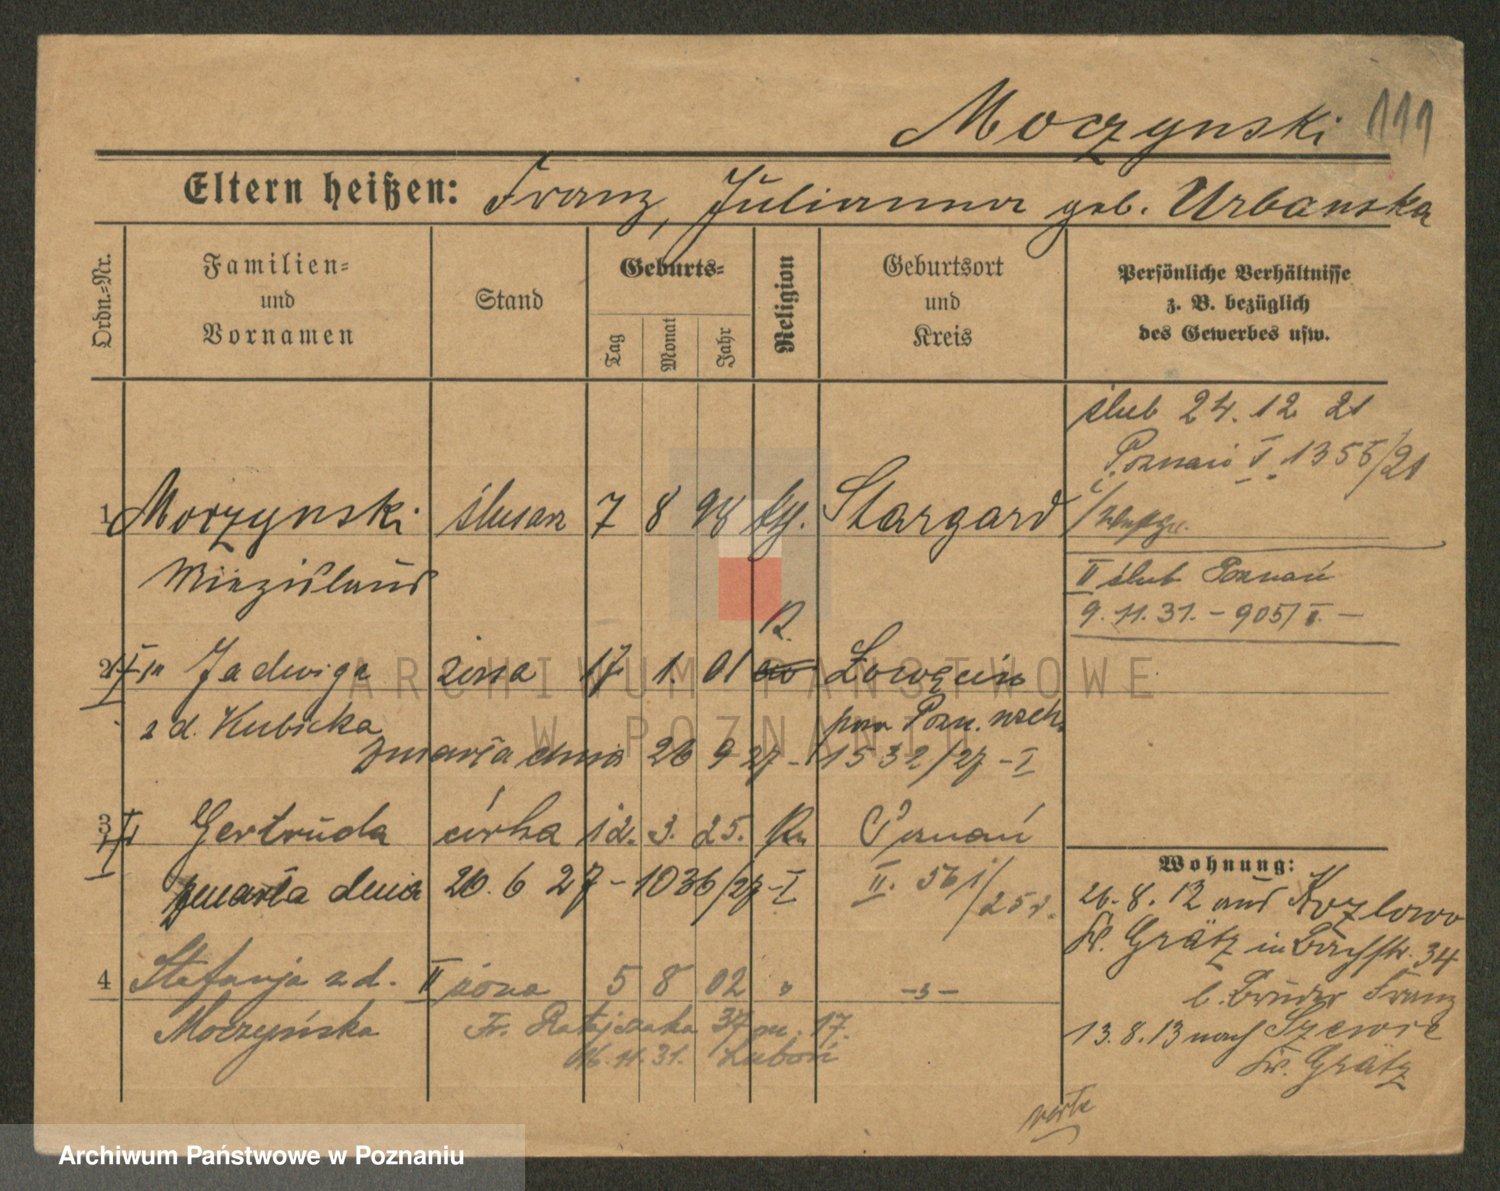 Moczynski 111
Eltern heißen: Franz, Julianna geb. Urbanska
Ordn.-Nr.
Familien-
und
Vornamen
Stand
Geburts-
Tag
Monat
Jahr
Religion
Geburtsort
und
Kreis
Persönliche Verhältnisse
z. B. bezüglich
des Gewerbes usw.
ślub 24. 12 21
Poznań I. 1355/21
1 Moczynski ślusarz 7 8 98 Stargard
II ślub Poznań
9. 11. 31. - 905/I. -
2 Jadwiga żona 17 1. 01 R.
z d. Kubicka
zmarła dnia 26 9 27 - 1532/27 - I
3 Gertruda córka 12. 3. 25. Poznań
zmarła dnia 20. 6 27 - 1036/27 - I II. 561/25
Wohnung:
26. 8. 12 aus Kozlowo
Kr. Grätz in Bachstr. 34
b. Bruder Franz
13. 8. 13 nach
Kr. Grätz
4 Stefanja z d. II żona 5 8 02 " -"-
Moczyńska Fr. Ratajczaka 37 m. 17.
16. 11. 31. Luboń
verte
ARCHIWUM PAŃSTWOWE
W POZNANIU
Archiwum Państwowe w Poznaniu